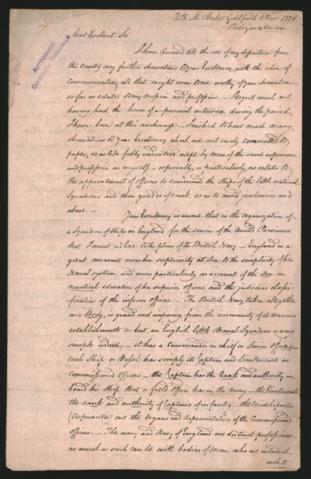 Most Excellent Sir
I have deferred till the eve of my departure from
this country any further observations to your Excellency, with the idea of
communicating all that might seem to me worthy of your attention
so far as relates to my mission and profession. – I regret much not
having had the honor of a personal interview during the period
I have been at this anchorage – I wished to have made many
observations to your Excellency which are not easily committed to
paper, so as to be fully understood except by men of the same experience
and profession as myself – especially, or particularly, as relates to
the appointment of officers to command the Ships of the little national
Squadron and their grades of rank, so as to avoid jealousies and
abuse –
Your Excellency is aware that in the organization of
a Squadron of Ships in England for the service of the United Provinces
that I must adhere to the plan of the British Navy – England in a
great measure owes her superiority at Sea to the simplicity of her
Naval system, and more particularly on account of the
nautical education of her superior officers and the judicious
of the inferior officers – The British Navy taken altogether
as a Body, is grand and imposing from the immensity of its various
establishments – but, an English little Naval Squadron is very
simple indeed – it has a commander in chief or Senior Officer
each Ship or Vessel has simply its Captain and Lieutenants as
commissioned officers – the Captain has the Rank and authority
board his Ship that a field officer has in the army – the Lieutenants
the rank and authority of Captains of infantry – the Midshipmen
(Aspirantes) are the Organs and Representatives of the Commissioned
officers. – The army and Navy of England are distinct professions
as much as such can be with bodies of men who are intended